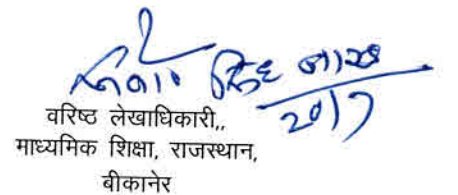 सिंह
2017
वरिष्ठ लेखाधिकारी,,
माध्यमिक शिक्षा, राजस्थान,
बीकानेर